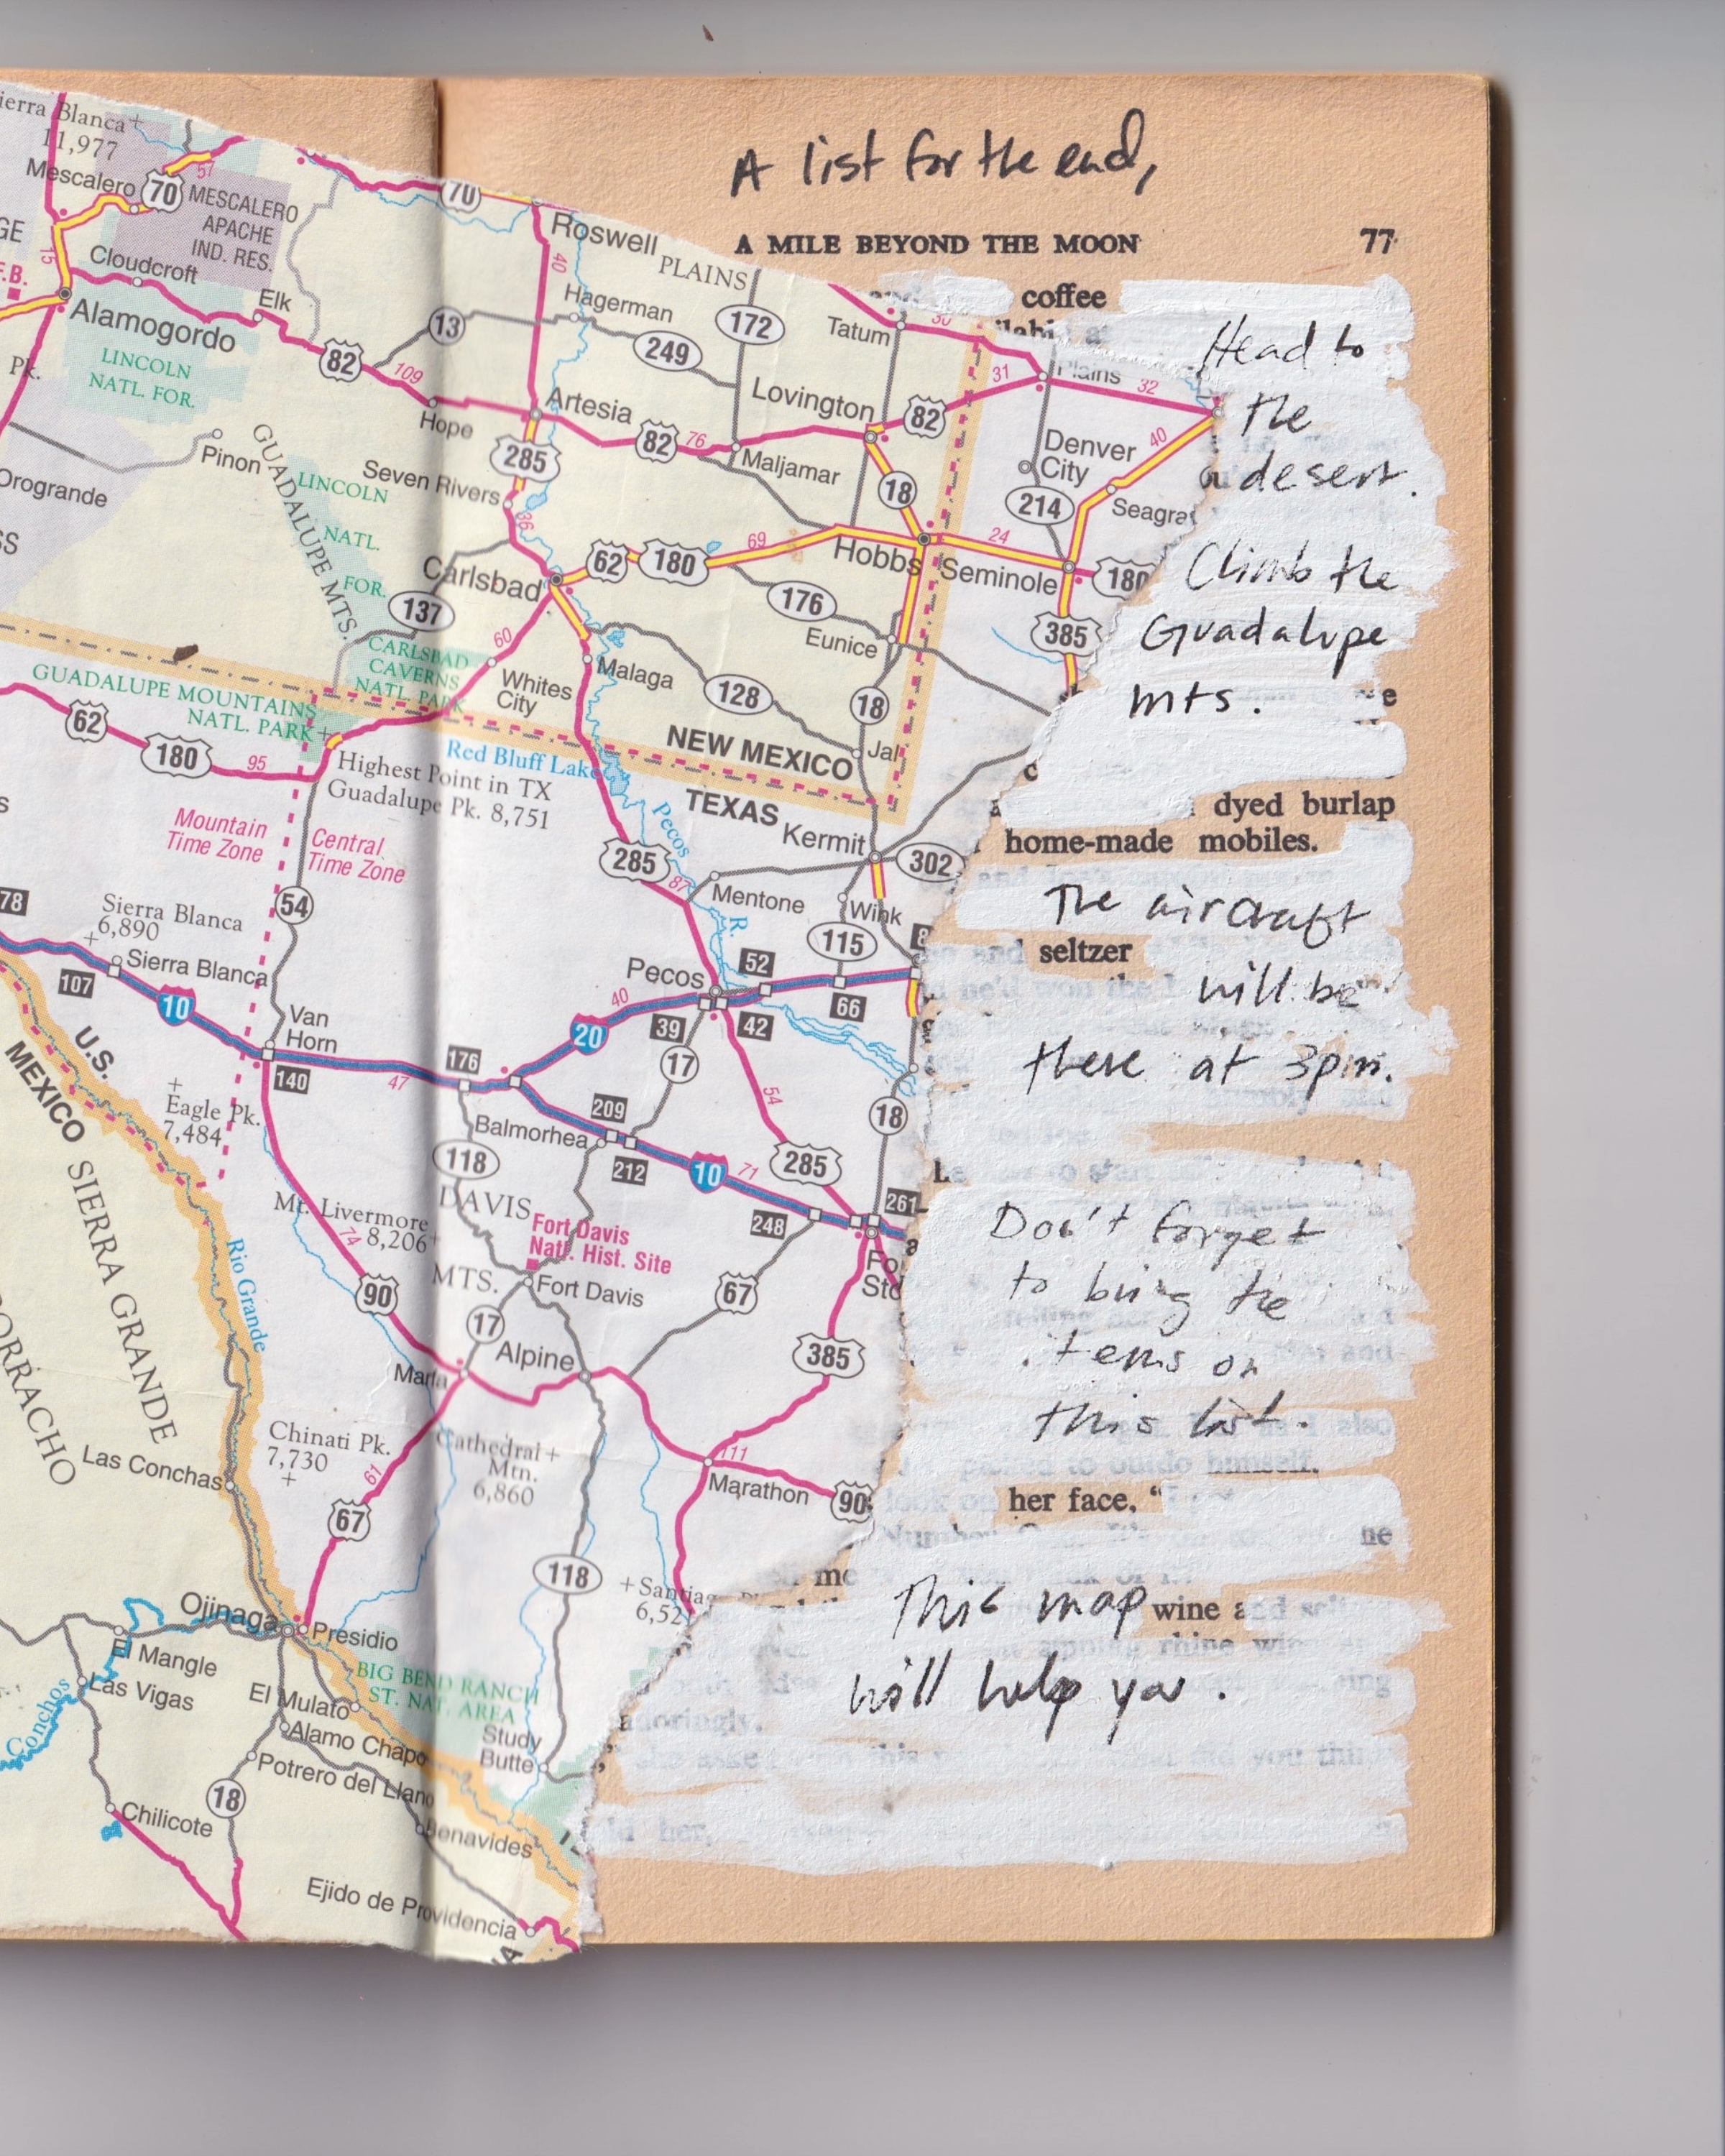 A list for the end,
A MILE BEYOND THE MOON 77
coffee
Head to
the
desert.
Climb the
Guadalupe
mts.
dyed burlap
home-made mobiles.
The aircraft
and seltzer
will be
there at 3pm.
Don't forget
to bring the
items on
this list.
also
to outdo himself.
her face. "
This map wine and
rhine
will help you.
adoringly.
this you
her,
Sierra Blanca
11,977
Mescalero
70
57
MESCALERO
APACHE
IND. RES.
15
Cloudcroft
Elk
Alamogordo
LINCOLN
NATL. FOR.
Pk.
82
109
13
70
Roswell
PLAINS
40
Hagerman
249
172
Tatum
30
Plains
31
32
Hope
Artesia
Lovington
82
82
76
Maljamar
Denver
City
40
Pinon
Orogrande
GUADALUPE MTS.
LINCOLN
NATL.
FOR.
Seven Rivers
285
36
18
214
Carlsbad
137
62
180
69
Hobbs
24
Seminole
180
176
Eunice
385
CARLSBAD
CAVERNS
NATL. PARK
60
Whites
City
Malaga
128
18
Jal
GUADALUPE MOUNTAINS
NATL. PARK
62
180
95
Highest Point in TX
Guadalupe Pk. 8,751
Red Bluff Lake
NEW MEXICO
TEXAS
Kermit
302
Mountain
Time Zone
Central
Time Zone
285
Pecos
R.
87
Mentone
Wink
115
54
78
Sierra Blanca
6,890
Sierra Blanca
107
10
Van
Horn
140
47
176
Pecos
52
66
40
20
39
42
17
54
U.S.
MEXICO
Eagle Pk.
7,484
Balmorhea
209
212
10
71
285
18
248
261
118
DAVIS
MTS.
Mt. Livermore
8,206
74
90
Fort Davis
Natl. Hist. Site
Fort Davis
67
385
17
Alpine
Marfa
SIERRA GRANDE
Rio Grande
Chinati Pk.
7,730
61
Cathedral
Mtn.
6,860
111
Marathon
90
Las Conchas
67
118
Ojinaga
Presidio
El Mangle
Las Vigas
Conchos
BIG BEND RANCH
ST. NAT. AREA
El Mulato
Alamo Chapo
Study
Butte
Potrero del Llano
18
Chilicote
Benavides
Ejido de Providencia